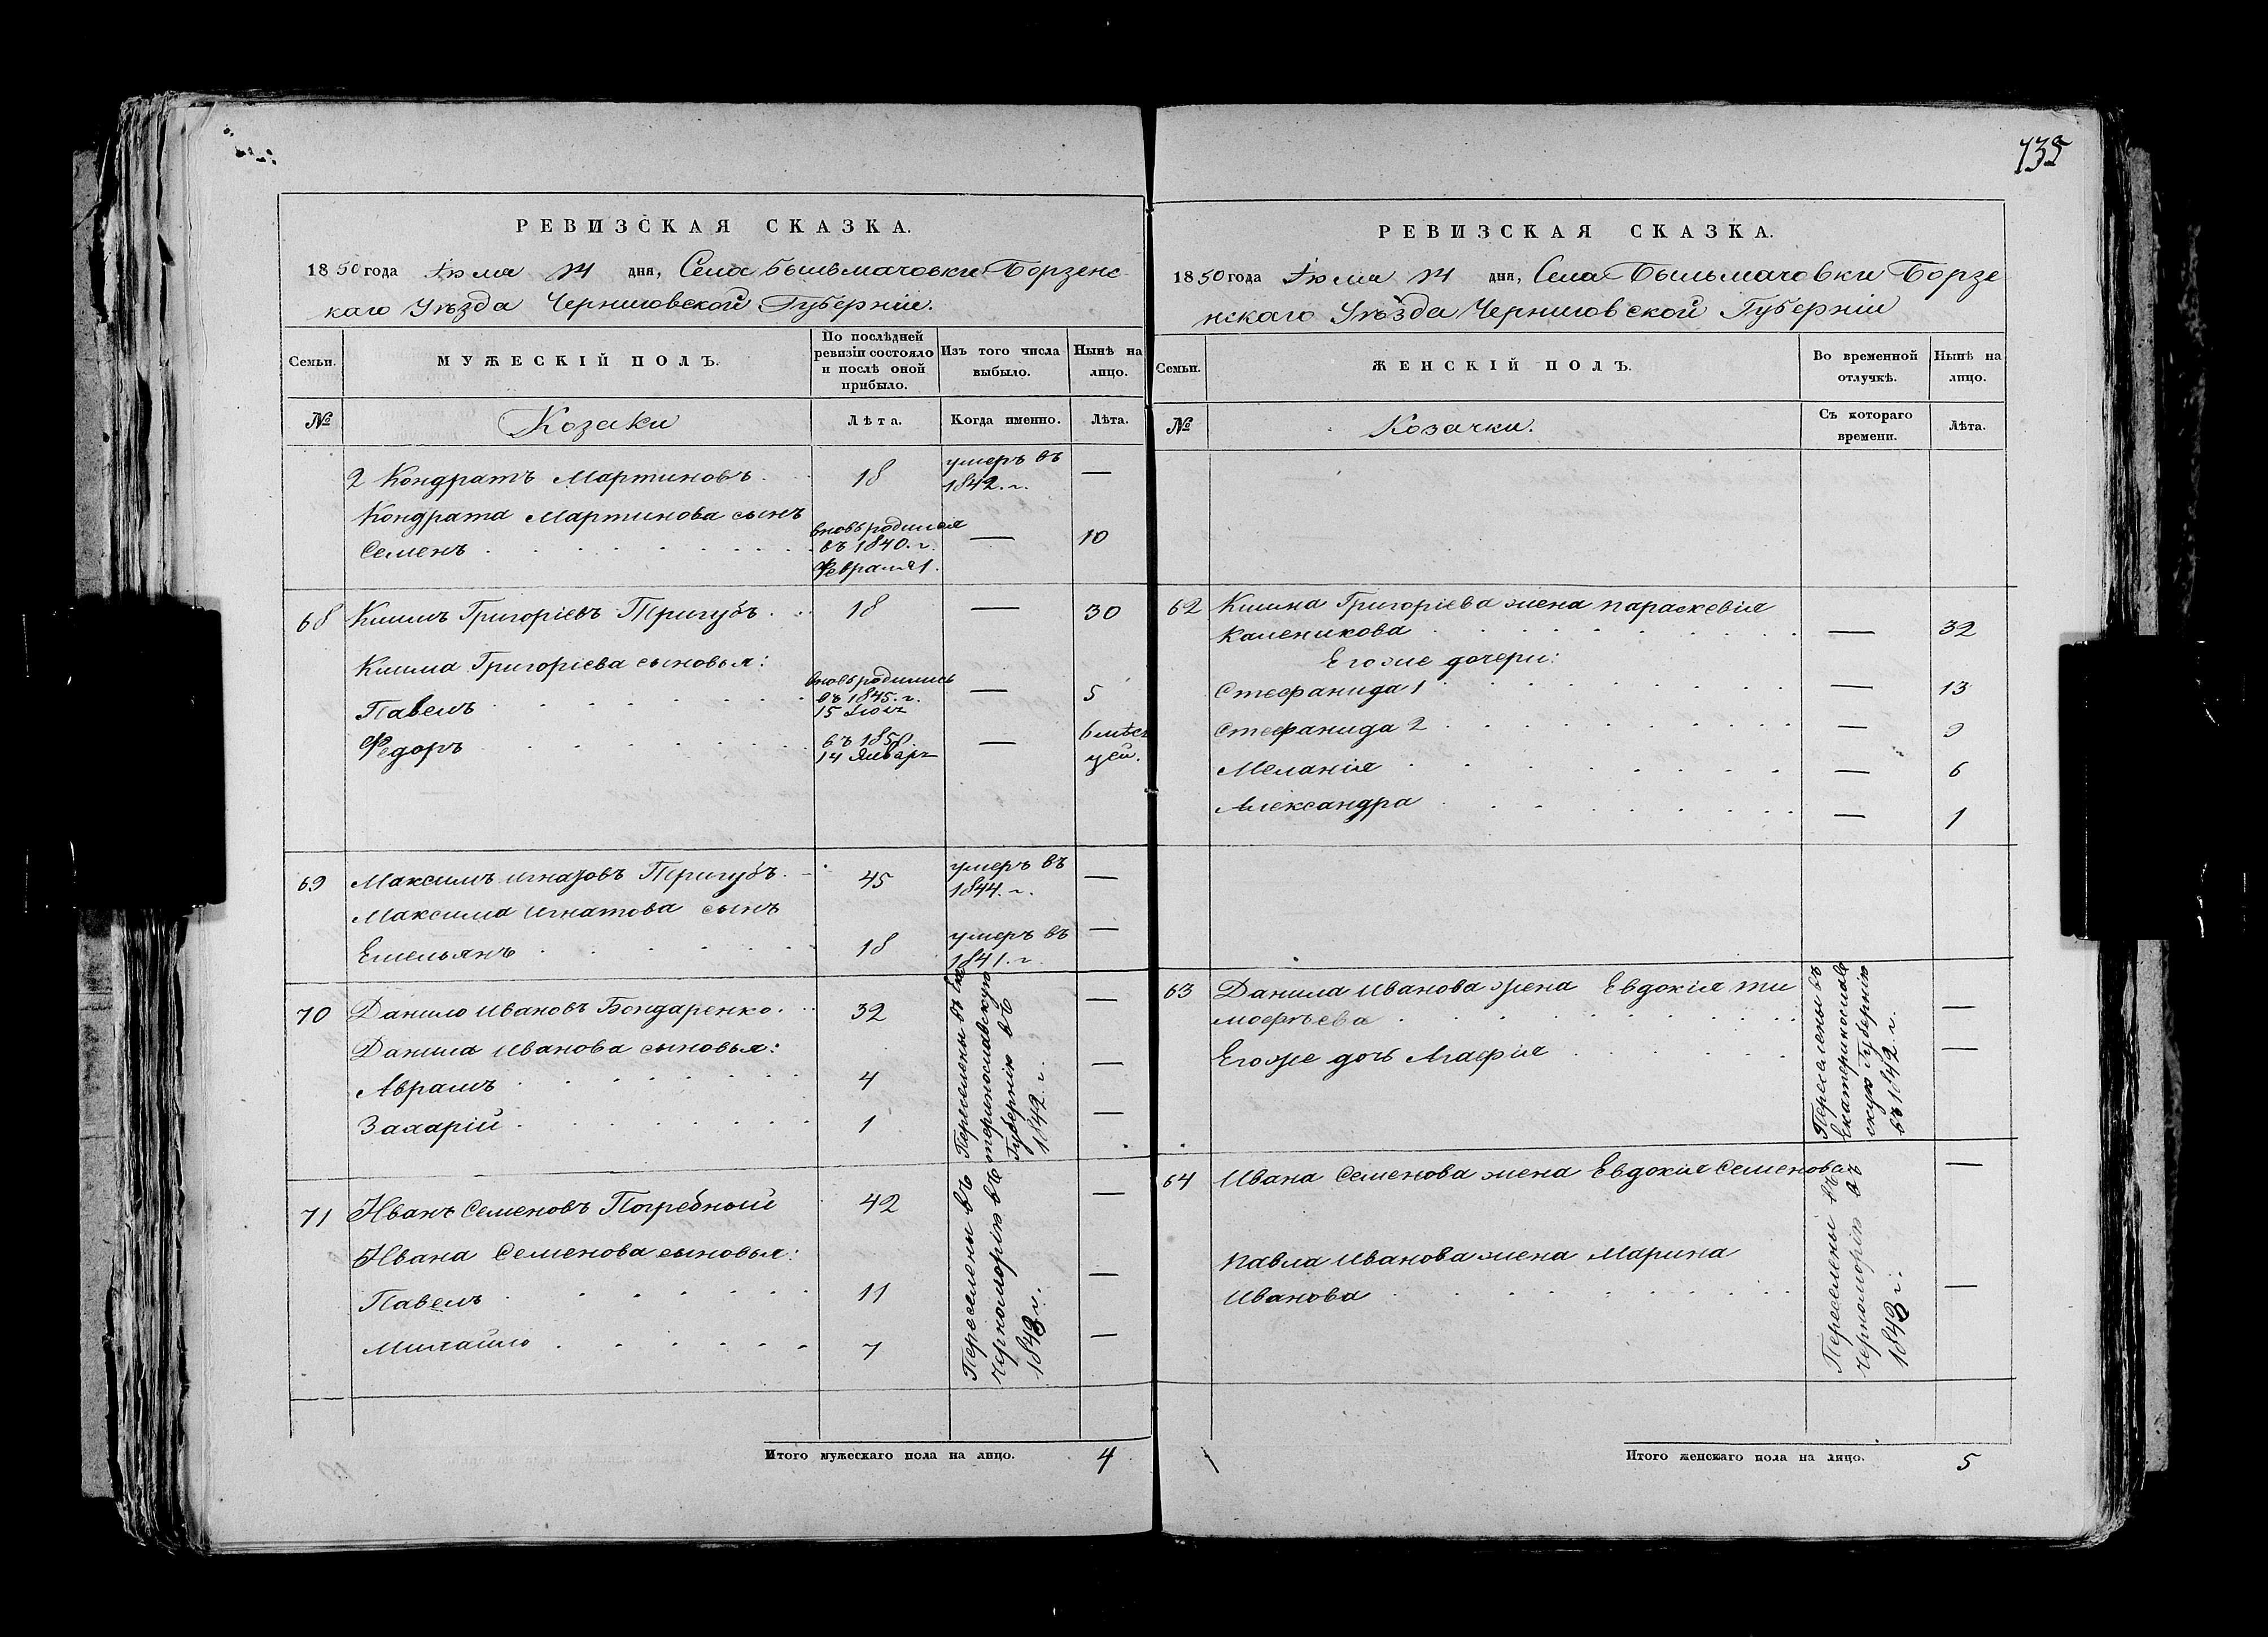 135
РЕВИЗСКАЯ СКАЗКА.
1850 года Июля 14 дня, Села Бильмачовки Борзенс
каго Уѣзда Черниговской Губерніи.
Семьи.
МУЖЕСКІЙ ПОЛЪ.
По послѣдней
ревизіи состояло
и послѣ оной
прибыло.
Изъ того числа
выбыло.
Нынѣ на
лицо.
№
Козаки
Лѣта.
Когда именно.
Лѣта.
2 Кондратъ Мартиновъ. 18 умеръ въ —
1842. г.
Кондрата Мартинова сынъ
Семенъ вновь родился — 10
въ 1840. г.
Февраля 1.
68 Климъ Григоріевъ Пригубъ. 18 — 30
Клима Григоріева сыновья:
Павелъ вновь родились — 5
въ 1845. г.
15
Федоръ въ 1850. — 6 мѣся
14 Январ цей.
69 Максимъ Игнатовъ Пригубъ. 45 умеръ въ —
1844. г.
Максима Игнатова сынъ
Емельянъ 18 умеръ въ —
1841. г.
70 Данило Ивановъ Бондаренко. 32 —
Данила Иванова сыновья:
Аврамъ 4 —
Захарій 1 —
Переселены въ Ека
териославскую
Губернію въ
1842. г.
71 Иванъ Семеновъ Погребный 42 —
Ивана Семенова сыновья:
Павелъ 11 —
Михайло 7 —
Переселены въ
Черноморію въ
1843 г.
Итого мужескаго пола на лицо. 4
РЕВИЗСКАЯ СКАЗКА.
1850 года Июля 14 дня, Села Бильмачовки Борзе
нскаго Уѣзда Черниговской Губерніи
Семьи.
ЖЕНСКІЙ ПОЛЪ.
Во временной
отлучкѣ.
Нынѣ на
лицо.
№
Козачки.
Съ котораго
времени.
Лѣта.
62 Клима Григоріева жена Параскевія
Каленикова — 32
Егоже дочери:
Стефанида 1 — 13
Стефанида 2 — 9
Меланія — 6
Александра — 1
63 Данила Иванова жена Евдокія Ти
мофѣева —
Егоже дочь Агафія —
Переселены въ
Екатеринослав
скую Губернію
въ 1842. г.
64 Ивана Семенова жена Евдокія Семенова —
Павла Иванова жена Марина
Иванова —
Переселены въ
Черноморію въ
1843 г.
Итого женскаго пола на лицо. 5